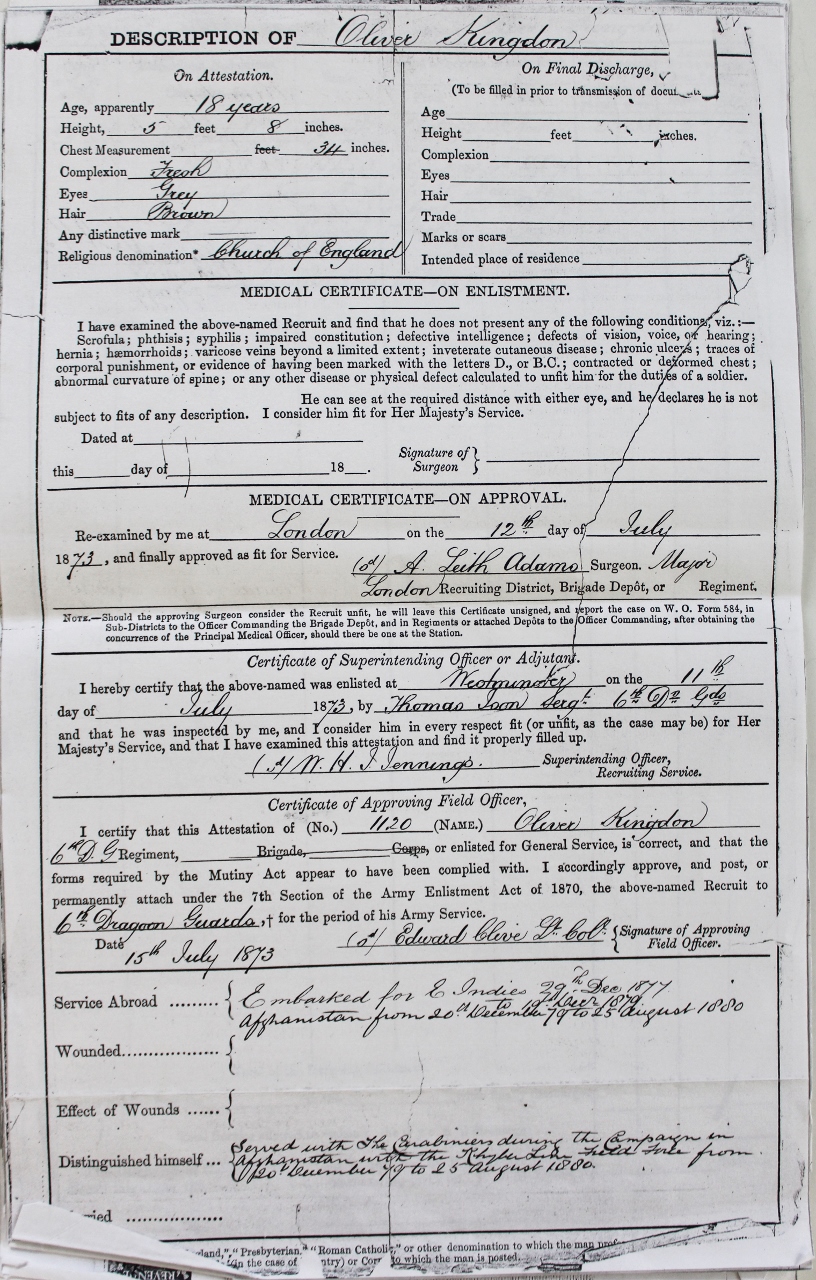 DESCRIPTION OF Oliver Kingdon
On Attestation.
Age, apparently 18 years
Height, 5 feet 8 inches.
Chest Measurement feet 34 inches.
Complexion Fresh
Eyes Grey
Hair Brown
Any distinctive mark
Religious denomination* Church of England
On Final Discharge,
(To be filled in prior to transmission of
Age
Height feet inches.
Complexion
Eyes
Hair
Trade
Marks or scars
Intended place of residence
MEDICAL CERTIFICATE—ON ENLISTMENT.
I have examined the above-named Recruit and find that he does not present any of the following conditions, viz.:—
Scrofula; phthisis; syphilis; impaired constitution; defective intelligence; defects of vision, voice, or hearing;
hernia; hæmorrhoids; varicose veins beyond a limited extent; inveterate cutaneous disease; chronic ulcers; traces of
corporal punishment, or evidence of having been marked with the letters D., or B.C.; contracted or deformed chest;
abnormal curvature of spine; or any other disease or physical defect calculated to unfit him for the duties of a soldier.
He can see at the required distance with either eye, and he declares he is not
subject to fits of any description. I consider him fit for Her Majesty's Service.
Dated at
this day of 18 .
Signature of
Surgeon
MEDICAL CERTIFICATE—ON APPROVAL.
Re-examined by me at London on the 12th day of July
1873, and finally approved as fit for Service.
(sd) A. Leith Adams Surgeon. Major
London Recruiting District, Brigade Depôt, or Regiment.
NOTE.—Should the approving Surgeon consider the Recruit unfit, he will leave this Certificate unsigned, and report the case on W. O. Form 584, in
Sub-Districts to the Officer Commanding the Brigade Depôt, and in Regiments or attached Depôts to the Officer Commanding, after obtaining the
concurrence of the Principal Medical Officer, should there be one at the Station.
Certificate of Superintending Officer or Adjutant.
I hereby certify that the above-named was enlisted at Westminster on the 11th
day of July 1873, by Thomas Sergt. 6th Dn Gds
and that he was inspected by me, and I consider him in every respect fit (or unfit, as the case may be) for Her
Majesty's Service, and that I have examined this attestation and find it properly filled up.
(sd) W. H. J. Jennings. Superintending Officer,
Recruiting Service.
Certificate of Approving Field Officer,
I certify that this Attestation of (No.) 1120 (NAME.) Oliver Kingdon
6th D. G Regiment, Brigade, Corps, or enlisted for General Service, is correct, and that the
forms required by the Mutiny Act appear to have been complied with. I accordingly approve, and post, or
permanently attach under the 7th Section of the Army Enlistment Act of 1870, the above-named Recruit to
6th Dragoon Guards,† for the period of his Army Service.
Date 15th July 1873
(sd) Edward Clive Lt. Colt. Signature of Approving
Field Officer.
Service Abroad ......... Embarked for E Indies 29th Dec 1877
to 19th Decr 1879
Afghanistan from 20th December 79 to 25 August 1880
Wounded..................
Effect of Wounds ......
Distinguished himself ... Served with The Carabiniers during the Campaign in
Afghanistan with the Khyber Line Field Force from
20th December 79 to 25 August 1880.
ried ..................
land," "Presbyterian," "Roman Catholic," or other denomination to which the man
(in the case of ntry) or Cor to which the man is posted.